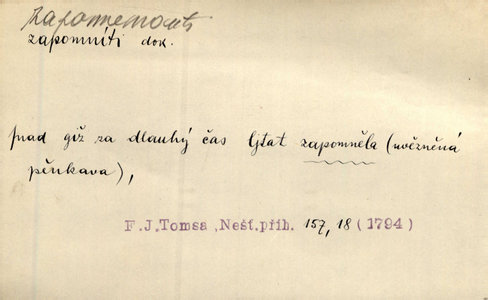 zapomenouti
zapomníti dok.
snad giž za dlauhý čas ljtat zapomněla (uvězněná
pěnkava),
F.J.Tomsa, Nešť.příh. 157,18 (1794)